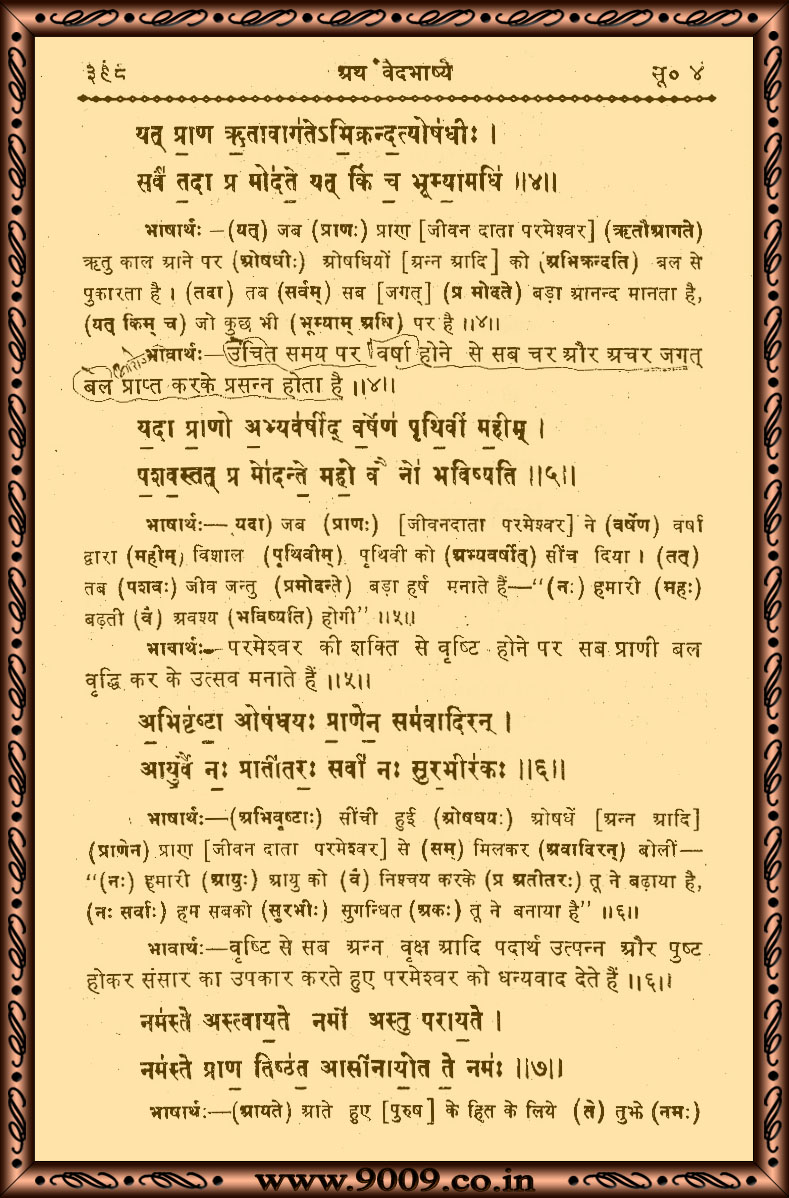 ३९८ अथर्ववेदभाष्ये सू० ४
यत् प्राण ऋतावागतेऽभिक्रन्दत्योषधीः ।
सर्वं तदा प्र मोदते यत् किं च भूम्यामधि ॥४॥
भाषार्थः—(यत्) जब (प्राणः) प्राण [जीवन दाता परमेश्वर] (ऋतौआगते)
ऋतु काल आने पर (ओषधीः) ओषधियों [अन्न आदि] को (अभिक्रन्दति) बल से
पुकारता है । (तदा) तब (सर्वम्) सब [जगत्] (प्र मोदते) बड़ा आनन्द मानता है,
(यत् किम् च) जो कुछ भी (भूम्याम् अधि) पर है ॥४॥
भावार्थः—उचित समय पर वर्षा होने से सब चर और अचर जगत्
बल प्राप्त करके प्रसन्न होता है ॥४॥
यदा प्राणो अभ्यवर्षीद् वर्षेण पृथिवीं महीम् ।
पशवस्तत् प्र मोदन्ते महो वै नो भविष्यति ॥५॥
भाषार्थः—यदा) जब (प्राणः) [जीवनदाता परमेश्वर] ने (वर्षेण) वर्षा
द्वारा (महीम्) विशाल (पृथिवीम्) पृथिवी को (अभ्यवर्षीत्) सींच दिया । (तत्)
तब (पशवः) जीव जन्तु (प्रमोदन्ते) बड़ा हर्ष मनाते हैं—“(नः) हमारी (महः)
बढ़ती (वै) अवश्य (भविष्यति) होगी” ॥५॥
भावार्थः—परमेश्वर की शक्ति से वृष्टि होने पर सब प्राणी बल
वृद्धि कर के उत्सव मनाते हैं ॥५॥
अभिवृष्टा ओषधयः प्राणेन समवादिरन् ।
आयुर्वै नः प्रातीतरः सर्वा नः सुरभीरकः ॥६॥
भाषार्थः—(अभिवृष्टाः) सींची हुई (ओषधयः) ओषधें [अन्न आदि]
(प्राणेन) प्राण [जीवन दाता परमेश्वर] से (सम्) मिलकर (अवादिरन्) बोलीं—
“(नः) हमारी (आयुः) आयु को (वै) निश्चय करके (प्र अतीतरः) तू ने बढ़ाया है,
(नः सर्वाः) हम सबको (सुरभीः) सुगन्धित (अकः) तू ने बनाया है” ॥६॥
भावार्थः—वृष्टि से सब अन्न वृक्ष आदि पदार्थ उत्पन्न और पुष्ट
होकर संसार का उपकार करते हुए परमेश्वर को धन्यवाद देते हैं ॥६॥
नमस्ते अस्त्वायते नमो अस्तु परायते ।
नमस्ते प्राण तिष्ठत आसीनायोत ते नमः ॥७॥
भाषार्थः—(आयते) आते हुए [पुरुष] के हित के लिये (ते) तुझे (नमः)
www.9009.co.in